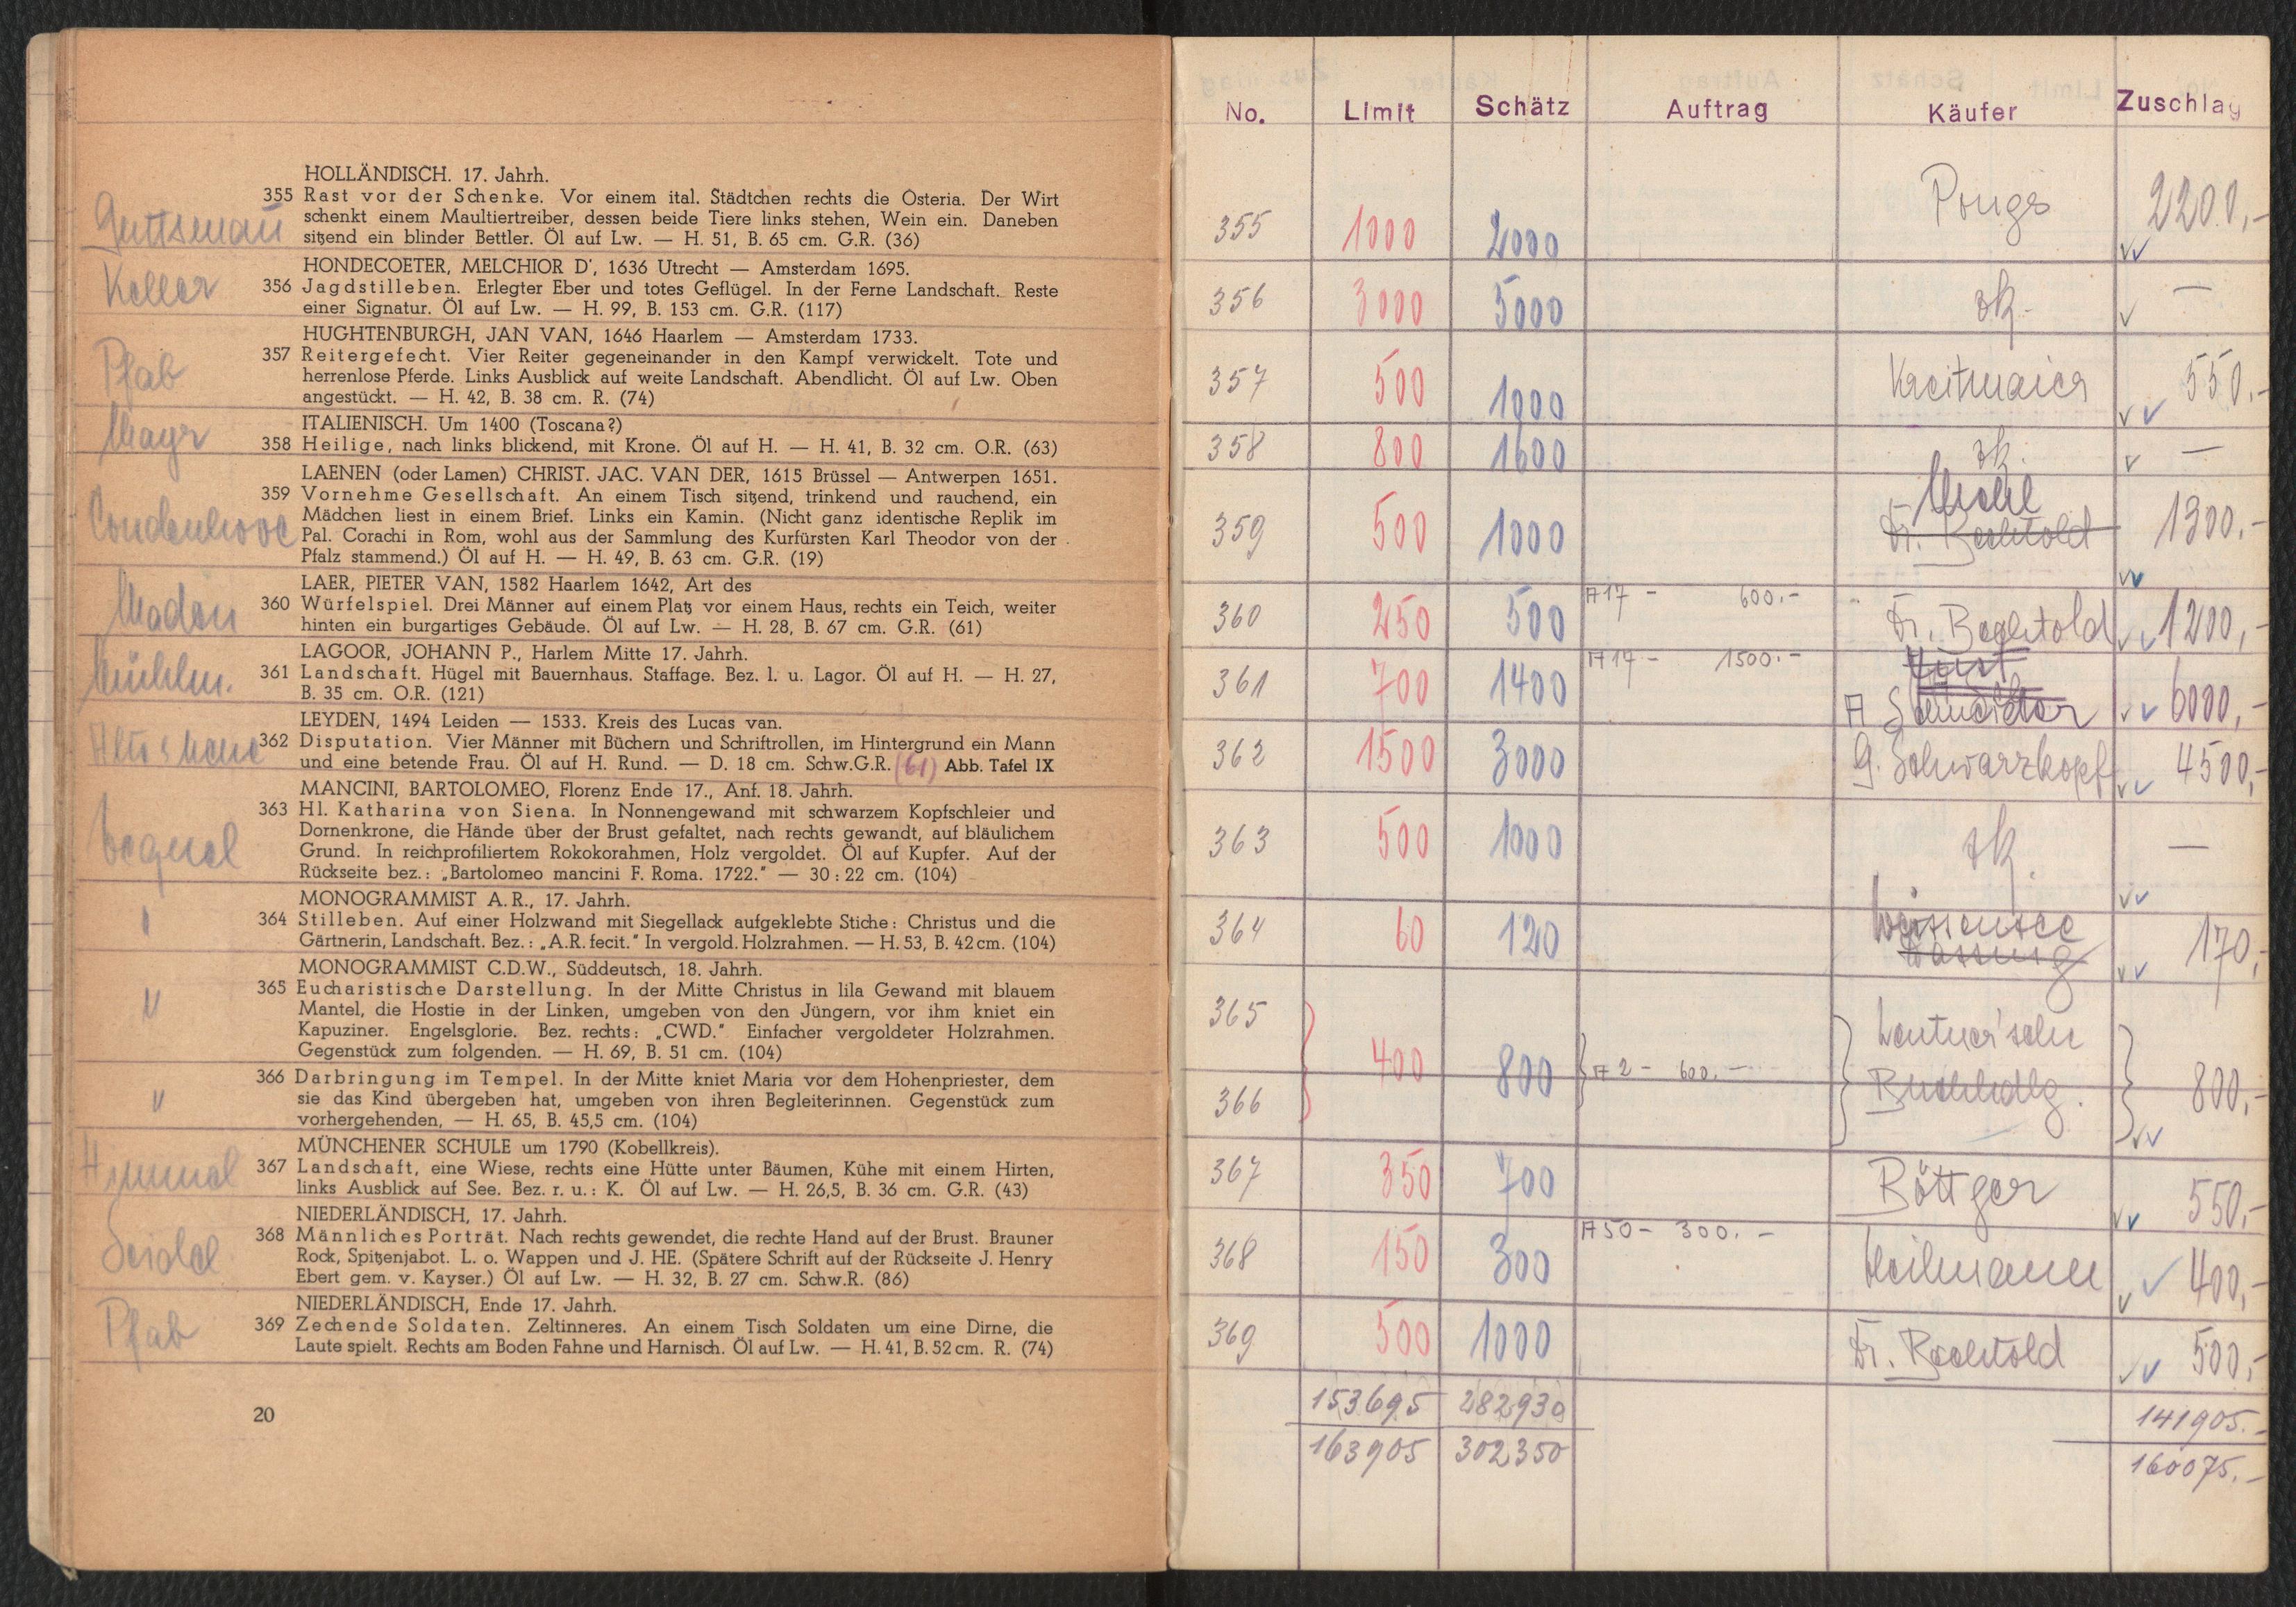 HOLLÄNDISCH. 17. Jahrh.
355 Rast vor der Schenke. Vor einem ital. Städtchen rechts die Osteria. Der Wirt
schenkt einem Maultiertreiber, dessen beide Tiere links stehen, Wein ein. Daneben
sitzend ein blinder Bettler. Öl auf Lw. — H. 51, B. 65 cm. G.R. (36)
Keller
HONDECOETER, MELCHIOR D', 1636 Utrecht — Amsterdam 1695.
356 Jagdstilleben. Erlegter Eber und totes Geflügel. In der Ferne Landschaft. Reste
einer Signatur. Öl auf Lw. — H. 99, B. 153 cm. G.R. (117)
Pfab
HUGHTENBURGH, JAN VAN, 1646 Haarlem — Amsterdam 1733.
357 Reitergefecht. Vier Reiter gegeneinander in den Kampf verwickelt. Tote und
herrenlose Pferde. Links Ausblick auf weite Landschaft. Abendlicht. Öl auf Lw. Oben
angestückt. — H. 42, B. 38 cm. R. (74)
Mayr
ITALIENISCH. Um 1400 (Toscana?)
358 Heilige, nach links blickend, mit Krone. Öl auf H. — H. 41, B. 32 cm. O.R. (63)
Coudenhove
LAENEN (oder Lamen) CHRIST. JAC. VAN DER, 1615 Brüssel — Antwerpen 1651.
359 Vornehme Gesellschaft. An einem Tisch sitzend, trinkend und rauchend, ein
Mädchen liest in einem Brief. Links ein Kamin. (Nicht ganz identische Replik im
Pal. Corachi in Rom, wohl aus der Sammlung des Kurfürsten Karl Theodor von der
Pfalz stammend.) Öl auf H. — H. 49, B. 63 cm. G.R. (19)
LAER, PIETER VAN, 1582 Haarlem 1642, Art des
360 Würfelspiel. Drei Männer auf einem Platz vor einem Haus, rechts ein Teich, weiter
hinten ein burgartiges Gebäude. Öl auf Lw. — H. 28, B. 67 cm. G.R. (61)
LAGOOR, JOHANN P., Harlem Mitte 17. Jahrh.
361 Landschaft. Hügel mit Bauernhaus. Staffage. Bez. l. u. Lagor. Öl auf H. — H. 27,
B. 35 cm. O.R. (121)
LEYDEN, 1494 Leiden — 1533. Kreis des Lucas van.
362 Disputation. Vier Männer mit Büchern und Schriftrollen, im Hintergrund ein Mann
und eine betende Frau. Öl auf H. Rund. — D. 18 cm. Schw.G.R. (61) Abb. Tafel IX
MANCINI, BARTOLOMEO, Florenz Ende 17., Anf. 18. Jahrh.
363 Hl. Katharina von Siena. In Nonnengewand mit schwarzem Kopfschleier und
Dornenkrone, die Hände über der Brust gefaltet, nach rechts gewandt, auf bläulichem
Grund. In reichprofiliertem Rokokorahmen, Holz vergoldet. Öl auf Kupfer. Auf der
Rückseite bez.: „Bartolomeo mancini F. Roma. 1722." — 30 : 22 cm. (104)
MONOGRAMMIST A. R., 17. Jahrh.
364 Stilleben. Auf einer Holzwand mit Siegellack aufgeklebte Stiche: Christus und die
Gärtnerin, Landschaft. Bez.: „A.R. fecit." In vergold. Holzrahmen. — H. 53, B. 42 cm. (104)
MONOGRAMMIST C.D.W., Süddeutsch, 18. Jahrh.
365 Eucharistische Darstellung. In der Mitte Christus in lila Gewand mit blauem
Mantel, die Hostie in der Linken, umgeben von den Jüngern, vor ihm kniet ein
Kapuziner. Engelsglorie. Bez. rechts: „CWD." Einfacher vergoldeter Holzrahmen.
Gegenstück zum folgenden. — H. 69, B. 51 cm. (104)
366 Darbringung im Tempel. In der Mitte kniet Maria vor dem Hohenpriester, dem
sie das Kind übergeben hat, umgeben von ihren Begleiterinnen. Gegenstück zum
vorhergehenden, — H. 65, B. 45,5 cm. (104)
MÜNCHENER SCHULE um 1790 (Kobellkreis).
367 Landschaft, eine Wiese, rechts eine Hütte unter Bäumen, Kühe mit einem Hirten,
links Ausblick auf See. Bez. r. u.: K. Öl auf Lw. — H. 26,5, B. 36 cm. G.R. (43)
Seidel
NIEDERLÄNDISCH, 17. Jahrh.
368 Männliches Porträt. Nach rechts gewendet, die rechte Hand auf der Brust. Brauner
Rock, Spitzenjabot. L. o. Wappen und J. HE. (Spätere Schrift auf der Rückseite J. Henry
Ebert gem. v. Kayser.) Öl auf Lw. — H. 32, B. 27 cm. Schw.R. (86)
Pfab
NIEDERLÄNDISCH, Ende 17. Jahrh.
369 Zechende Soldaten. Zeltinneres. An einem Tisch Soldaten um eine Dirne, die
Laute spielt. Rechts am Boden Fahne und Harnisch. Öl auf Lw. — H. 41, B. 52 cm. R. (74)
20
No. Limit Schätz Auftrag Käufer Zuschlag
355 1000 2000 Pongs 2200,-
356 3000 5000 zk. —
357 500 1000 Kreitmaier 550.-
358 800 1600 zk. —
359 500 1000 Dr. Bechtold 1300.-
360 250 500 A 17 - 600.- Dr. Bechtold 1200,-
361 700 1400 A 17 - 1500.- 6000,-
362 1500 3000 G. Schwarzkopf 4500,-
363 500 1000 zk. —
364 60 120 Weissensee 170,-
365 Lentner'sche
400 800 A 2 - 600.- 800,-
366 Buchhdlg.
367 350 700 Böttger 550,-
368 150 300 A 50 - 300.- Heilmann 400,-
369 500 1000 Dr. Bechtold 500,-
153695 282930 141905.-
163905 302350 160075.-